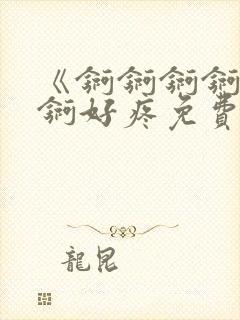 《锕锕锕锕
锕好疼免費
龍昆